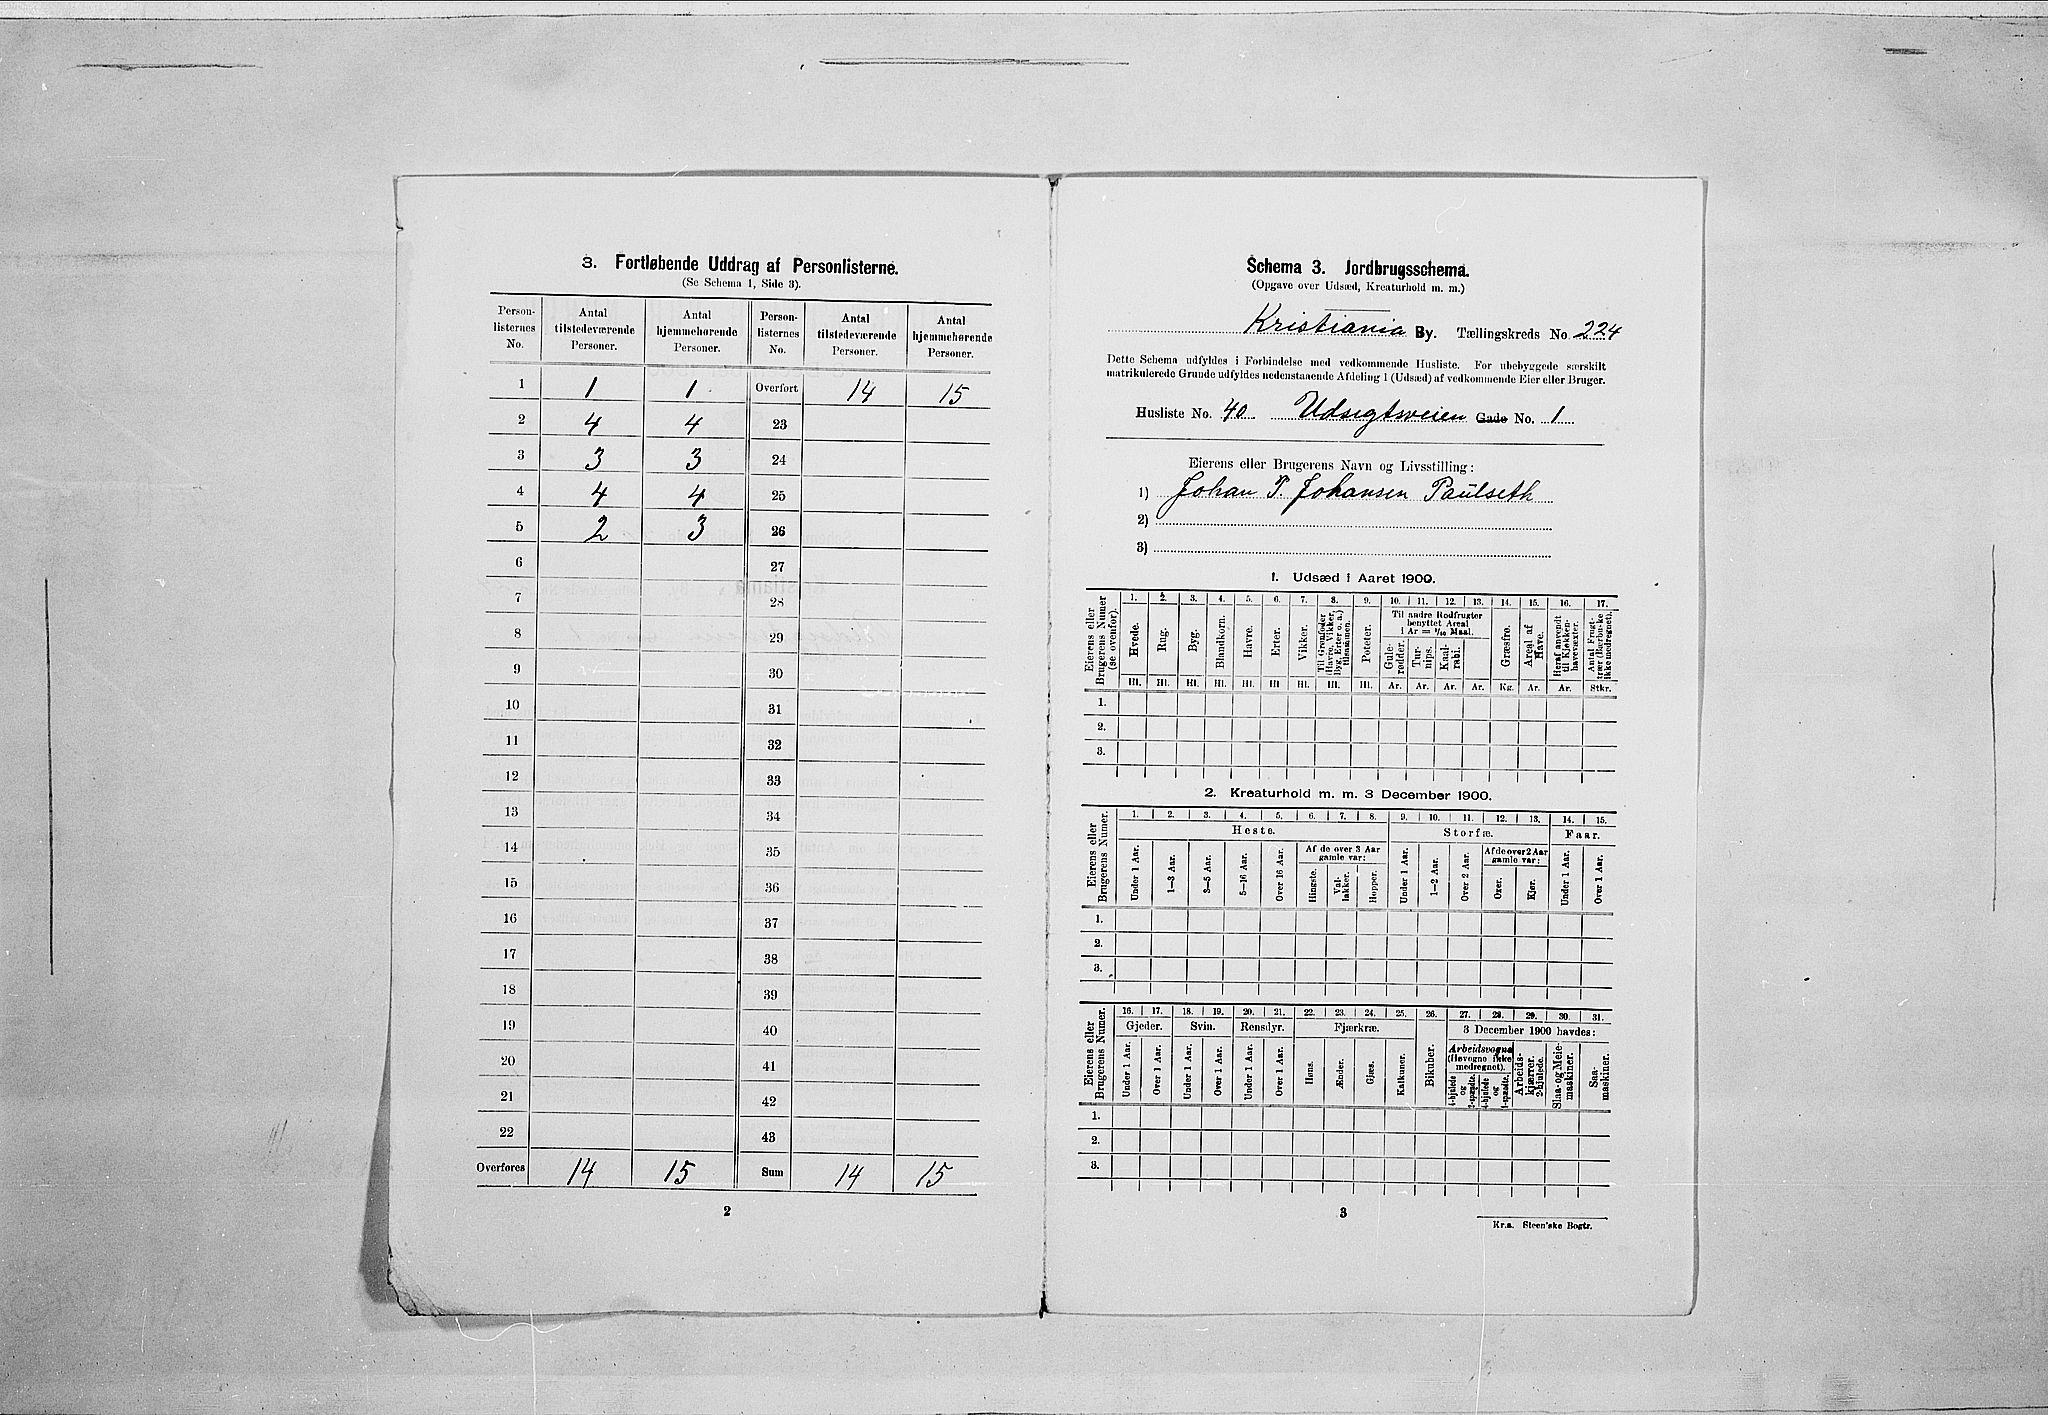 3. Fortløbende Uddrag af Personlisterne.
(Se Schema 1, Side 3).
Person-listernes No. | Antal tilstedeværende Personer. | Antal hjemmehørende Personer. | Person-listernes No. | Antal tilstedeværende Personer. | Antal hjemmehørende Personer.
1 | 1 | 1 | Overført | 14 | 15
2 | 4 | 4 | 23
3 | 3 | 3 | 24
4 | 4 | 4 | 25
5 | 2 | 3 | 26
6 | 27
7 | 28
8 | 29
9 | 30
10 | 31
11 | 32
12 | 33
13 | 34
14 | 35
15 | 36
16 | 37
17 | 38
18 | 39
19 | 40
20 | 41
21 | 42
22 | 43
Overføres | 14 | 15 | Sum | 14 | 15
2
Schema 3. Jordbrugsschema.
(Opgave over Udsæd, Kreaturhold m. m.)
Kristiania By. Tællingskreds No. 224
Dette Schema udfyldes i Forbindelse med vedkommende Husliste. For ubebyggede særskilt
matrikulerede Grunde udfyldes nedenstaaende Afdeling 1 (Udsæd) af vedkommende Eier eller Bruger.
Husliste No. 40 Udsigtsveien Gade No. 1
Eierens eller Brugerens Navn og Livsstilling:
1) Johan P. Johansen Paulseth
2)
3)
1. Udsæd i Aaret 1900.
Eierens eller Brugerens Numer (se ovenfor).
1. | 2. | 3. | 4. | 5. | 6. | 7. | 8. | 9. | 10. | 11. | 12. | 13. | 14. | 15. | 16. | 17.
Til andre Rodfrugter benyttet Areal i Ar = 1/10 Maal.
Hvede. | Rug. | Byg. | Blandkorn. | Havre. | Erter. | Vikker. | Til Grønfoder (Havre, Vikker, Byg, Erter o. a.) tilsammen. | Poteter. | Gule-rødder. | Tur-nips. | Kaal-rabi. | Græsfrø. | Areal af Have. | Heraf anvendt til Kjøkken-havevæxter. | Antal Frugt-trær (Bærbuske ikke medregnet).
Hl. | Hl. | Hl. | Hl. | Hl. | Hl. | Hl. | Hl. | Hl. | Ar. | Ar. | Ar. | Ar. | Kg. | Ar. | Ar. | Stkr.
1.
2.
3.
2. Kreaturhold m. m. 3 December 1900.
Eierens eller Brugerens Numer.
1. | 2. | 3. | 4. | 5. | 6. | 7. | 8. | 9. | 10. | 11. | 12. | 13. | 14. | 15.
Heste. | Storfæ. | Faar.
Af de over 3 Aar gamle var: | Af de over 2 Aar gamle var:
Under 1 Aar. | 1—3 Aar. | 3—5 Aar. | 5—16 Aar. | Over 16 Aar. | Hingste. | Val-lakker. | Hopper. | Under 1 Aar. | 1—2 Aar. | Over 2 Aar. | Oxer. | Kjør. | Under 1 Aar. | Over 1 Aar.
1.
2.
3.
Eierens eller Brugerens Numer.
16. | 17. | 18. | 19. | 20. | 21. | 22. | 23. | 24. | 25. | 26. | 27. | 28. | 29. | 30. | 31.
Gjeder. | Svin. | Rensdyr. | Fjærkræ. | Bikuber. | 3 December 1900 havdes:
Arbeidsvogne (Høvogne ikke medregnet).
Under 1 Aar. | Over 1 Aar. | Under 1 Aar. | Over 1 Aar. | Under 1 Aar. | Over 1 Aar. | Høns. | Ænder. | Gjæs. | Kalkuner. | 4-hjulede og 2-spændte. | 4-hjulede og 1-spændte. | Arbeids-kjærrer, 2-hjulede. | Slaa- og Meie-maskiner. | Saa-maskiner.
1.
2.
3.
3
Kr.a. Steen'ske Bogtr.